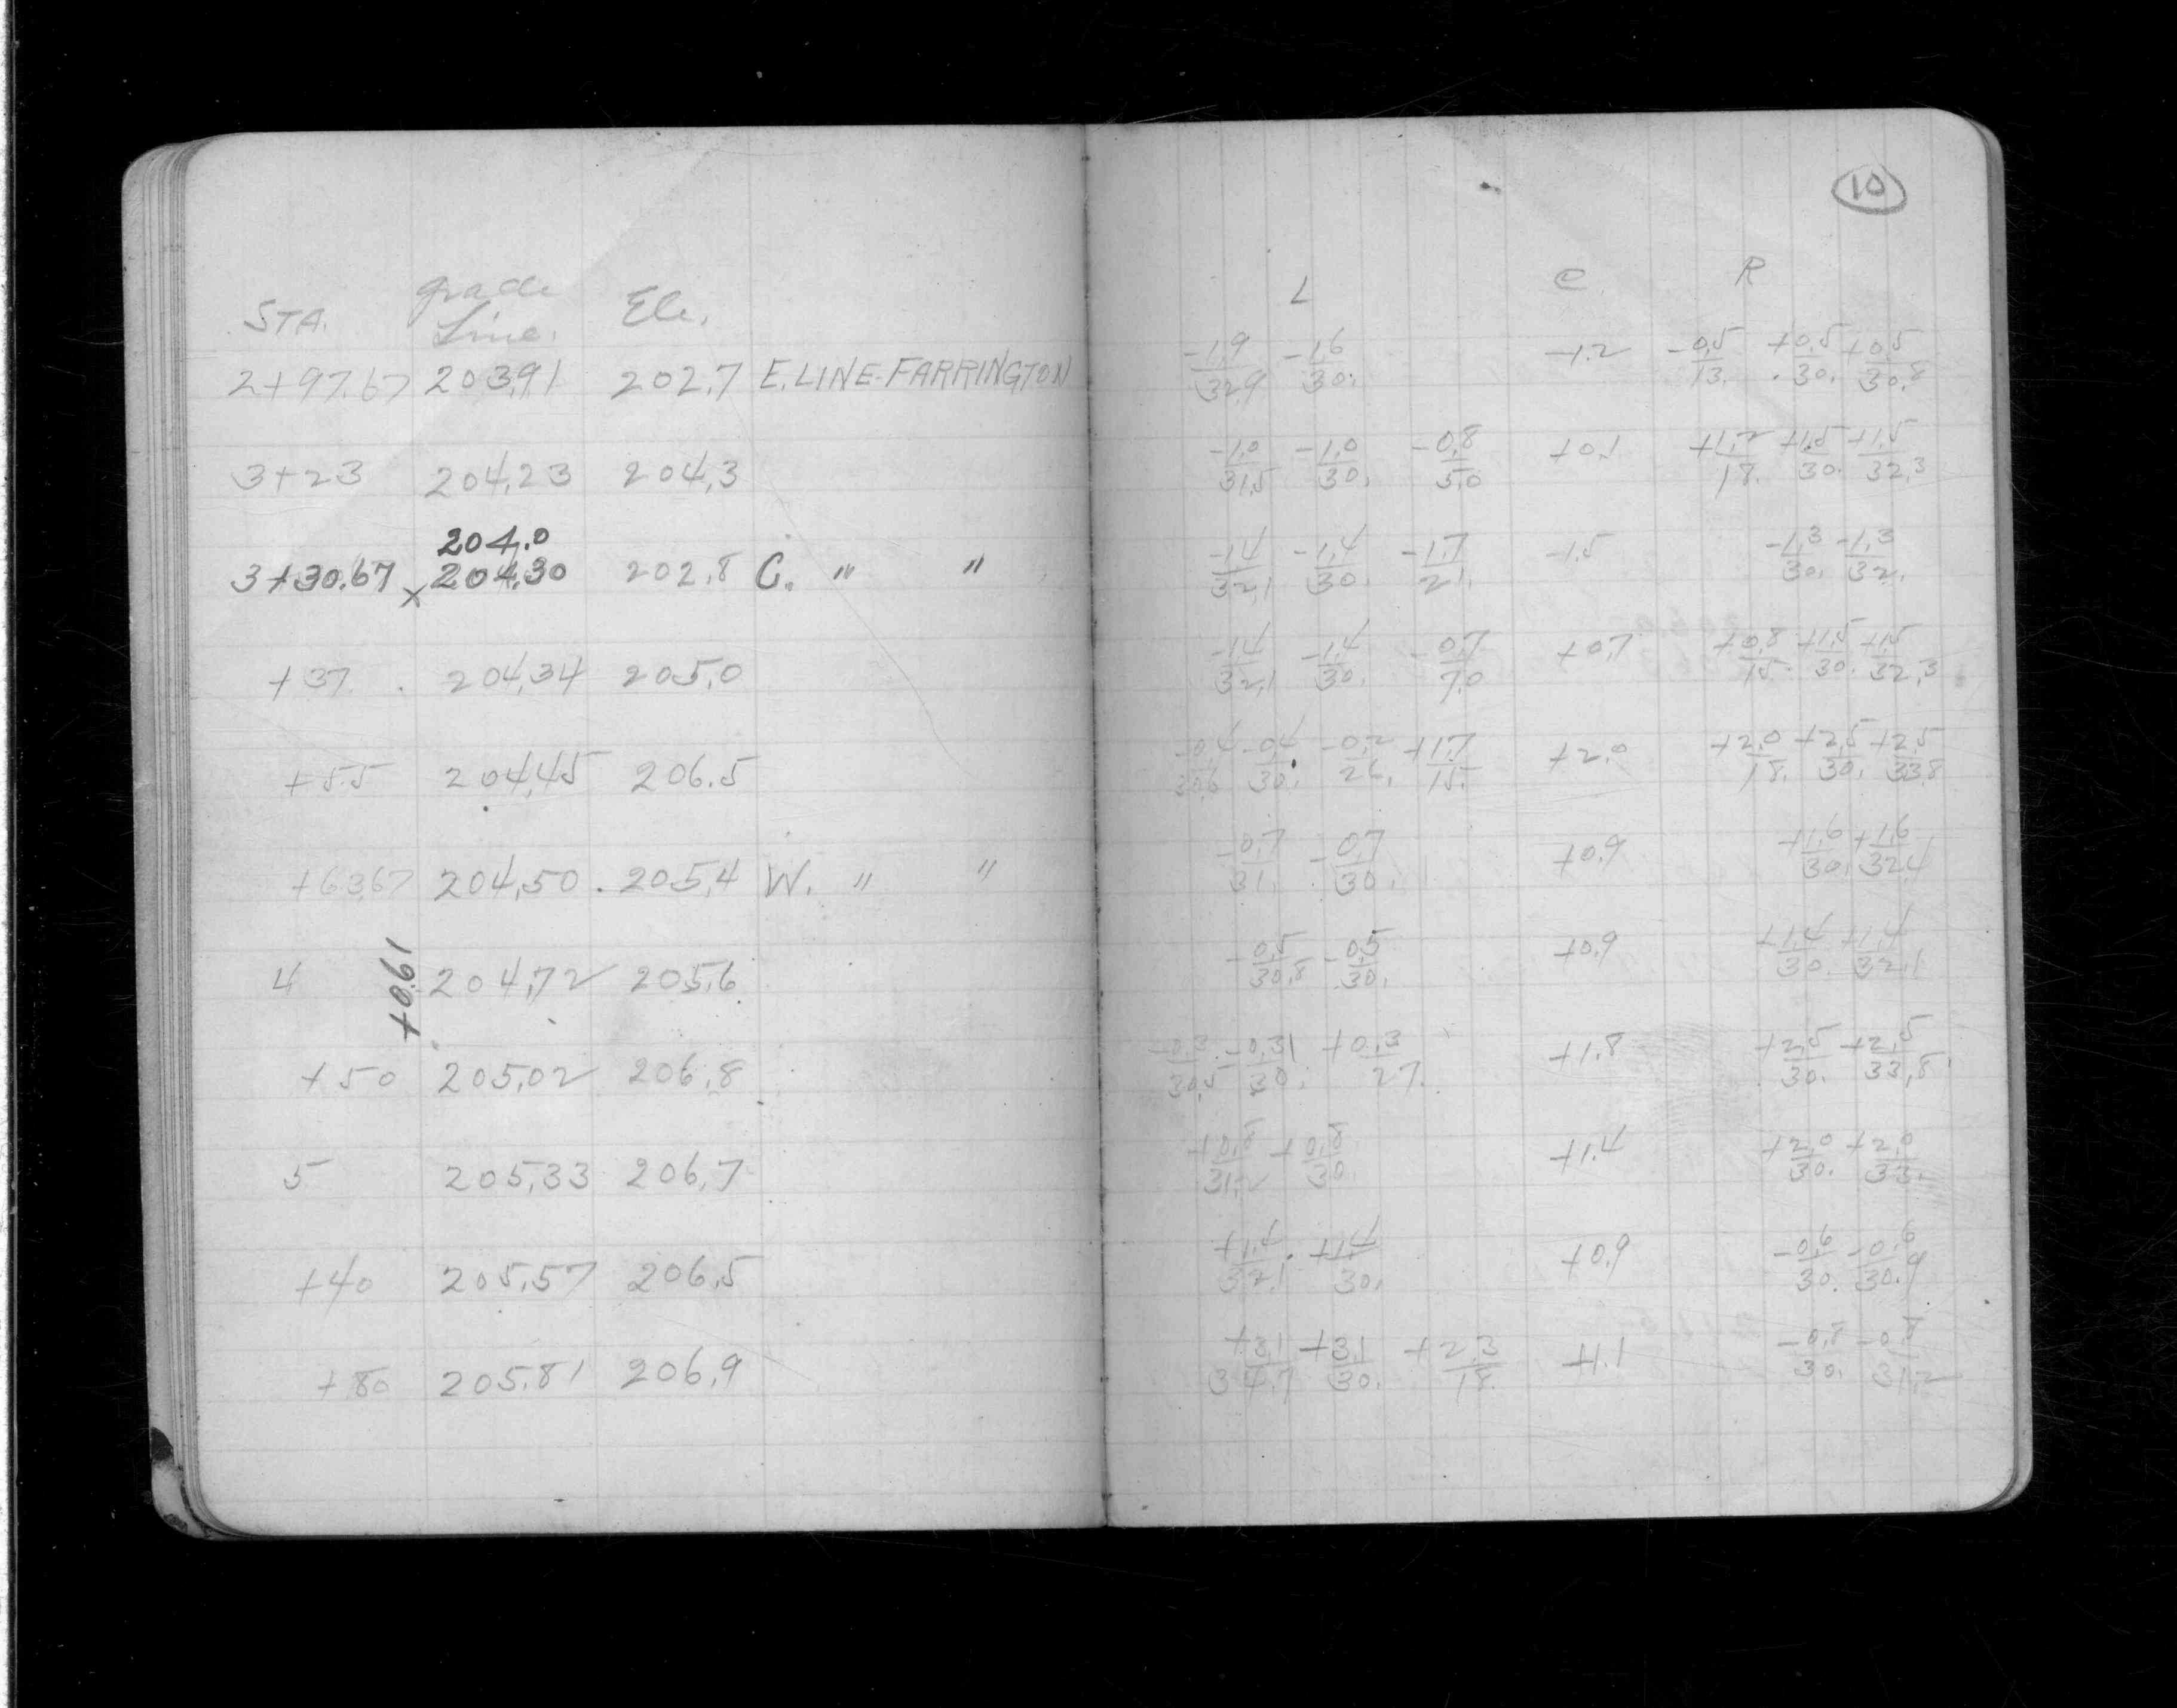 STA. grade Line. Ele.
2+97.67 203.91 202.7 E. LINE-FARRINGTON
3+23 204.23 204.3
204.0
3+30.67 x 204.30 202.8 C. " "
+37 204.34 205.0
+55 204.45 206.5
+63.67 204.50 205.4 W. " "
4 204.72 205.6
+0.61
+50 205.02 206.8
5 205.33 206.7
+40 205.57 206.5
+80 205.81 206.9
10
L C R
-1.9/32.9 -1.6/30. -1.2 -0.5/13. +0.5/30. +0.5/30.8
-1.0/31.5 -1.0/30. -0.8/5.0 +0.1 +1.2/18. +1.5/30. +1.5/32.3
-1.4/32.1 -1.4/30. -1.7/21. -1.5 -1.3/30. -1.3/32.
-1.4/32.1 -1.4/30. -0.7/7.0 +0.7 +0.8/15. +1.5/30. +1.5/32.3
-0.4/30.6 -0.4/30. -0.2/26. +1.7/15. +2.0 +2.0/18. +2.5/30. +2.5/33.8
-0.7/31. -0.7/30. +0.9 +1.6/30. +1.6/32.4
-0.5/30.8 -0.5/30. +0.9 +1.4/30. +1.4/32.1
-0.3/30.5 -0.3/30. +0.3/27. +1.8 +2.5/30. +2.5/33.8
+0.8/31.2 +0.8/30. +1.4 +2.0/30. +2.0/33.
+1.4/32.1 +1.4/30. +0.9 -0.6/30. -0.6/30.9
+3.1/34.7 +3.1/30. +2.3/18. +1.1 -0.8/30. -0.8/31.2